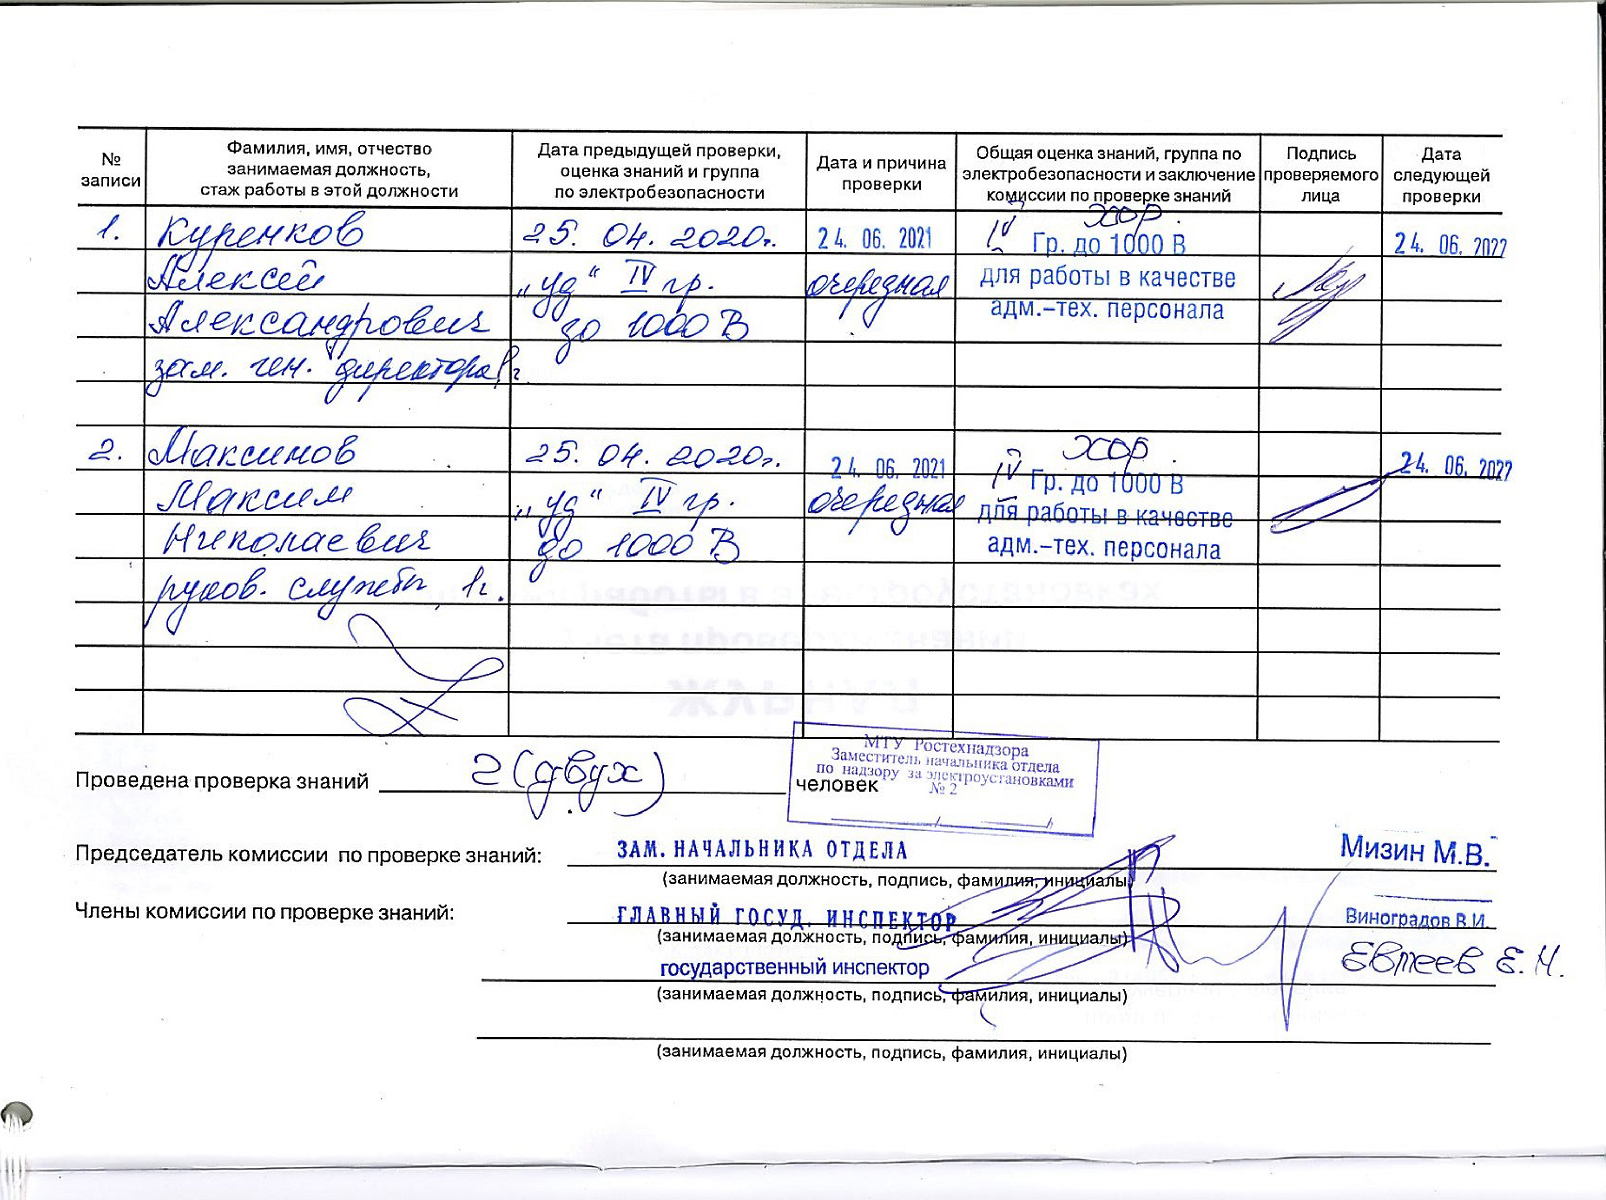 № записи
Фамилия, имя, отчество
занимаемая должность,
стаж работы в этой должности
Дата предыдущей проверки,
оценка знаний и группа
по электробезопасности
Дата и причина
проверки
Общая оценка знаний, группа по
электробезопасности и заключение
комиссии по проверке знаний
Подпись
проверяемого
лица
Дата
следующей
проверки
1.
Куренков
Алексей
Александрович
зам. ген. директора 1г.
25. 04. 2020г.
„уд“ IV гр.
до 1000 В
24. 06. 2021
очередная
хор.
IV Гр. до 1000 В
для работы в качестве
адм.-тех. персонала
24. 06. 2022
2.
Максимов
Максим
Николаевич
руков. службы 1г.
25. 04. 2020г.
„уд“ IV гр.
до 1000 В
24. 06. 2021
очередная
хор.
IV Гр. до 1000 В
для работы в качестве
адм.-тех. персонала
24. 06. 2022
МТУ Ростехнадзора
Заместитель начальника отдела
по надзору за электроустановками
№ 2
Проведена проверка знаний 2 (двух) человек
Председатель комиссии по проверке знаний: ЗАМ. НАЧАЛЬНИКА ОТДЕЛА Мизин М.В.
(занимаемая должность, подпись, фамилия, инициалы)
Члены комиссии по проверке знаний: ГЛАВНЫЙ ГОСУД. ИНСПЕКТОР Виноградов В.И.
(занимаемая должность, подпись, фамилия, инициалы)
государственный инспектор Евтеев Е.Н.
(занимаемая должность, подпись, фамилия, инициалы)
(занимаемая должность, подпись, фамилия, инициалы)